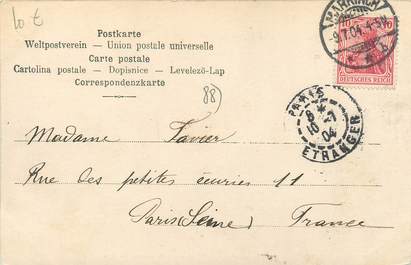 10 t
Postkarte
Weltpostverein – Union postale universelle
Carte postale
Cartolina postale – Dopisnice – Levelezö-Lap
Correspondenzkarte
88)
MARKIRCH
9.7.04. 4-5N.
b
10
10
DEUTSCHES REICH
PARIS
8*
10-7
04
ETRANGER
Madame Favier
Rue des petites écuries 11
Paris (Seine) France